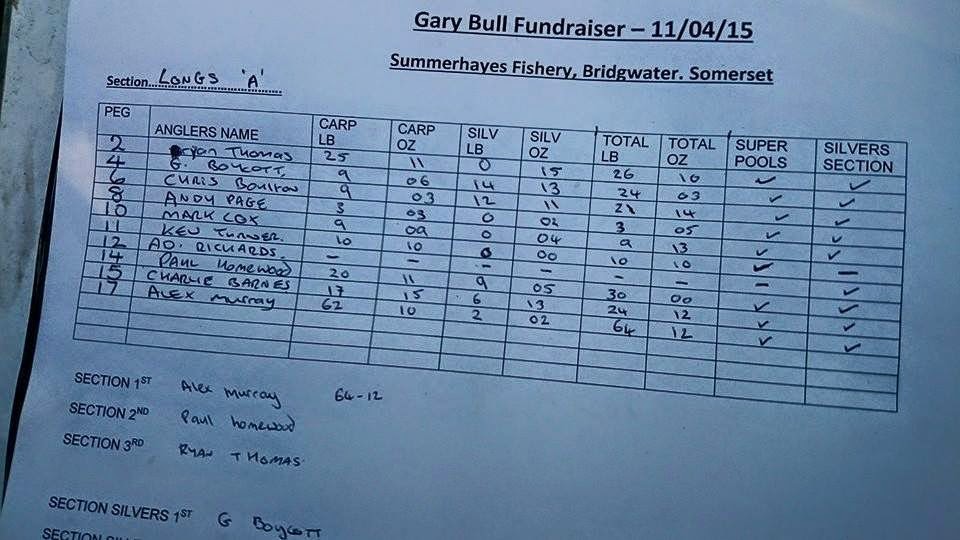 Gary Bull Fundraiser – 11/04/15
Summerhayes Fishery, Bridgwater. Somerset
Section... LONGS 'A'
PEG ANGLERS NAME CARP LB CARP OZ SILV LB SILV OZ TOTAL LB TOTAL OZ SUPER POOLS SILVERS SECTION
2 Ryan Thomas 25 11 0 15 26 10 ✓ ✓
4 G. BOYCOTT, 9 06 14 13 24 03 ✓ ✓
6 CHRIS BOULTON 9 03 12 11 21 14 ✓ ✓
8 ANDY PAGE 3 03 0 02 3 05 ✓ ✓
10 MARK COX 9 09 0 04 9 13 ✓ ✓
11 KEV TURNER. 10 10 0 00 10 10 ✓ –
12 AD. RICHARDS. – – – – – – –
14 PAUL HOMEWOOD 20 11 9 05 30 00 ✓ ✓
15 CHARLIE BARNES 17 15 6 13 24 12 ✓ ✓
17 ALEX MURRAY 62 10 2 02 64 12 ✓ ✓
SECTION 1ST Alex Murray 64-12
SECTION 2ND Paul Homewood
SECTION 3RD RYAN THOMAS.
SECTION SILVERS 1ST G BOYCOTT